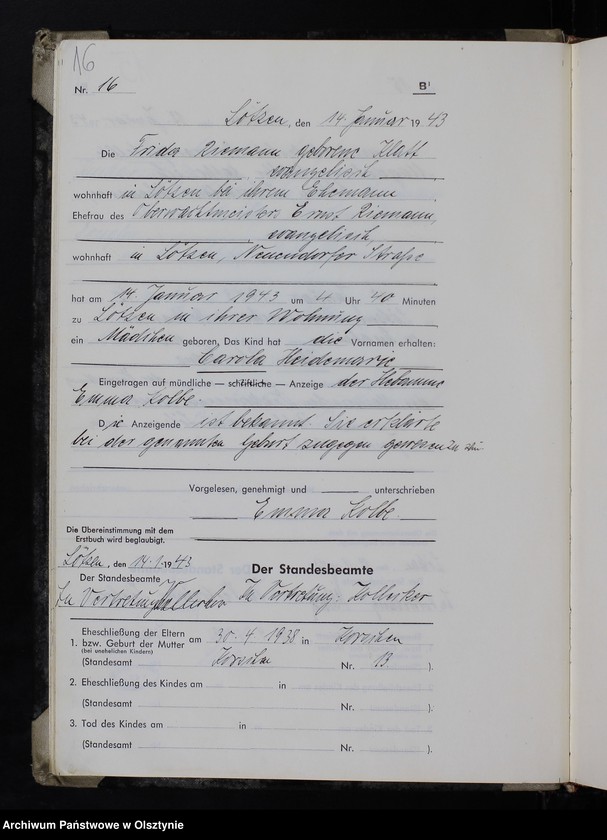 16
Nr. 16 B¹
Lötzen, den 14. Januar 1943
Die Frida Riemann geborene Klett
evangelisch
wohnhaft in Lötzen bei ihrem Ehemann
Ehefrau des Oberwachtmeister Ernst Riemann,
evangelisch,
wohnhaft in Lötzen, Neuendorfer Straße
hat am 14. Januar 1943 um 4 Uhr 40 Minuten
zu Lötzen in ihrer Wohnung
ein Mädchen geboren. Das Kind hat die Vornamen erhalten:
Carola Heidemarie
Eingetragen auf mündliche — schriftliche — Anzeige der Hebamme
Emma Kolbe.
Die Anzeigende ist bekannt. Sie erklärte
bei der genannten Geburt zugegen gewesen zu sein
Vorgelesen, genehmigt und unterschrieben
Emma Kolbe
Die Übereinstimmung mit dem
Erstbuch wird beglaubigt.
Lötzen, den 14.1.1943
Der Standesbeamte
Der Standesbeamte
In Vertretung In Vertretung:
Eheschließung der Eltern am 30.4.1938 in Korschen
1. bzw. Geburt der Mutter
(bei unehelichen Kindern)
(Standesamt Korschen Nr. 13 ).
2. Eheschließung des Kindes am in
(Standesamt Nr. ).
3. Tod des Kindes am in
(Standesamt Nr. ).
Archiwum Państwowe w Olsztynie